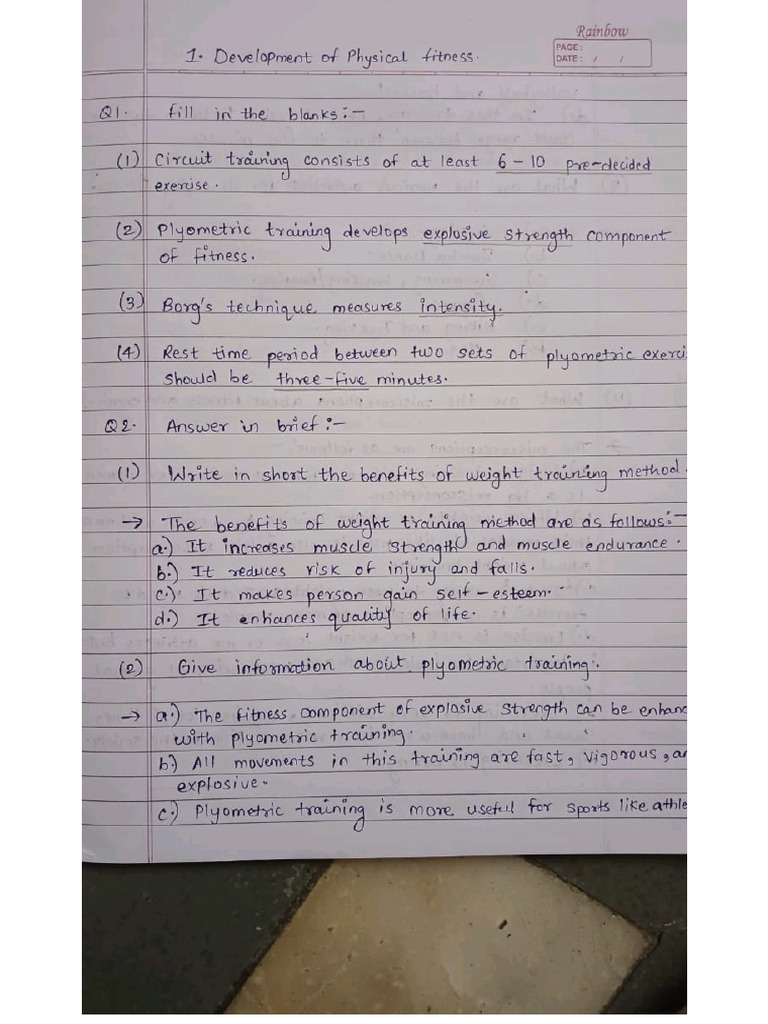 Rainbow
PAGE:
DATE: / /
1. Development of Physical fitness.
Q1. Fill in the blanks:-
(1) Circuit training consists of at least 6-10 pre-decided
exercise.
(2) Plyometric training develops explosive strength component
of fitness.
(3) Borg's technique measures intensity.
(4) Rest time period between two sets of plyometric exerci
should be three-five minutes.
Q2. Answer in brief:-
(1) Write in short the benefits of weight training method.
→ The benefits of weight training method are as follows:-
a.) It increases muscle strength and muscle endurance.
b.) It reduces risk of injury and falls.
c.) It makes person gain self-esteem.
d.) It enhances quality of life.
(2) Give information about plyometric training.
→ a.) The fitness component of explosive strength can be enhanc
with plyometric training.
b.) All movements in this training are fast, vigorous, an
explosive.
c.) Plyometric training is more useful for sports like athle